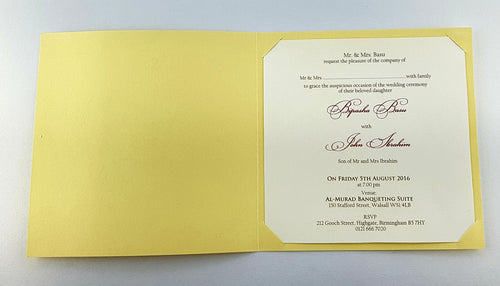 Mr. & Mrs. Basu
request the pleasure of the company of
Mr & Mrs ______________________ with family
to grace the auspicious occasion of the wedding ceremony
of their beloved daughter
Bipasha Basu
with
John Ibrahim
Son of Mr and Mrs Ibrahim
On Friday 5th August 2016
at 7.00 pm
Venue:
Al-Murad Banqueting Suite
150 Stafford Street, Walsall WS1 4LB
RSVP
212 Gooch Street, Highgate, Birmingham B5 7HY
0121 666 7020